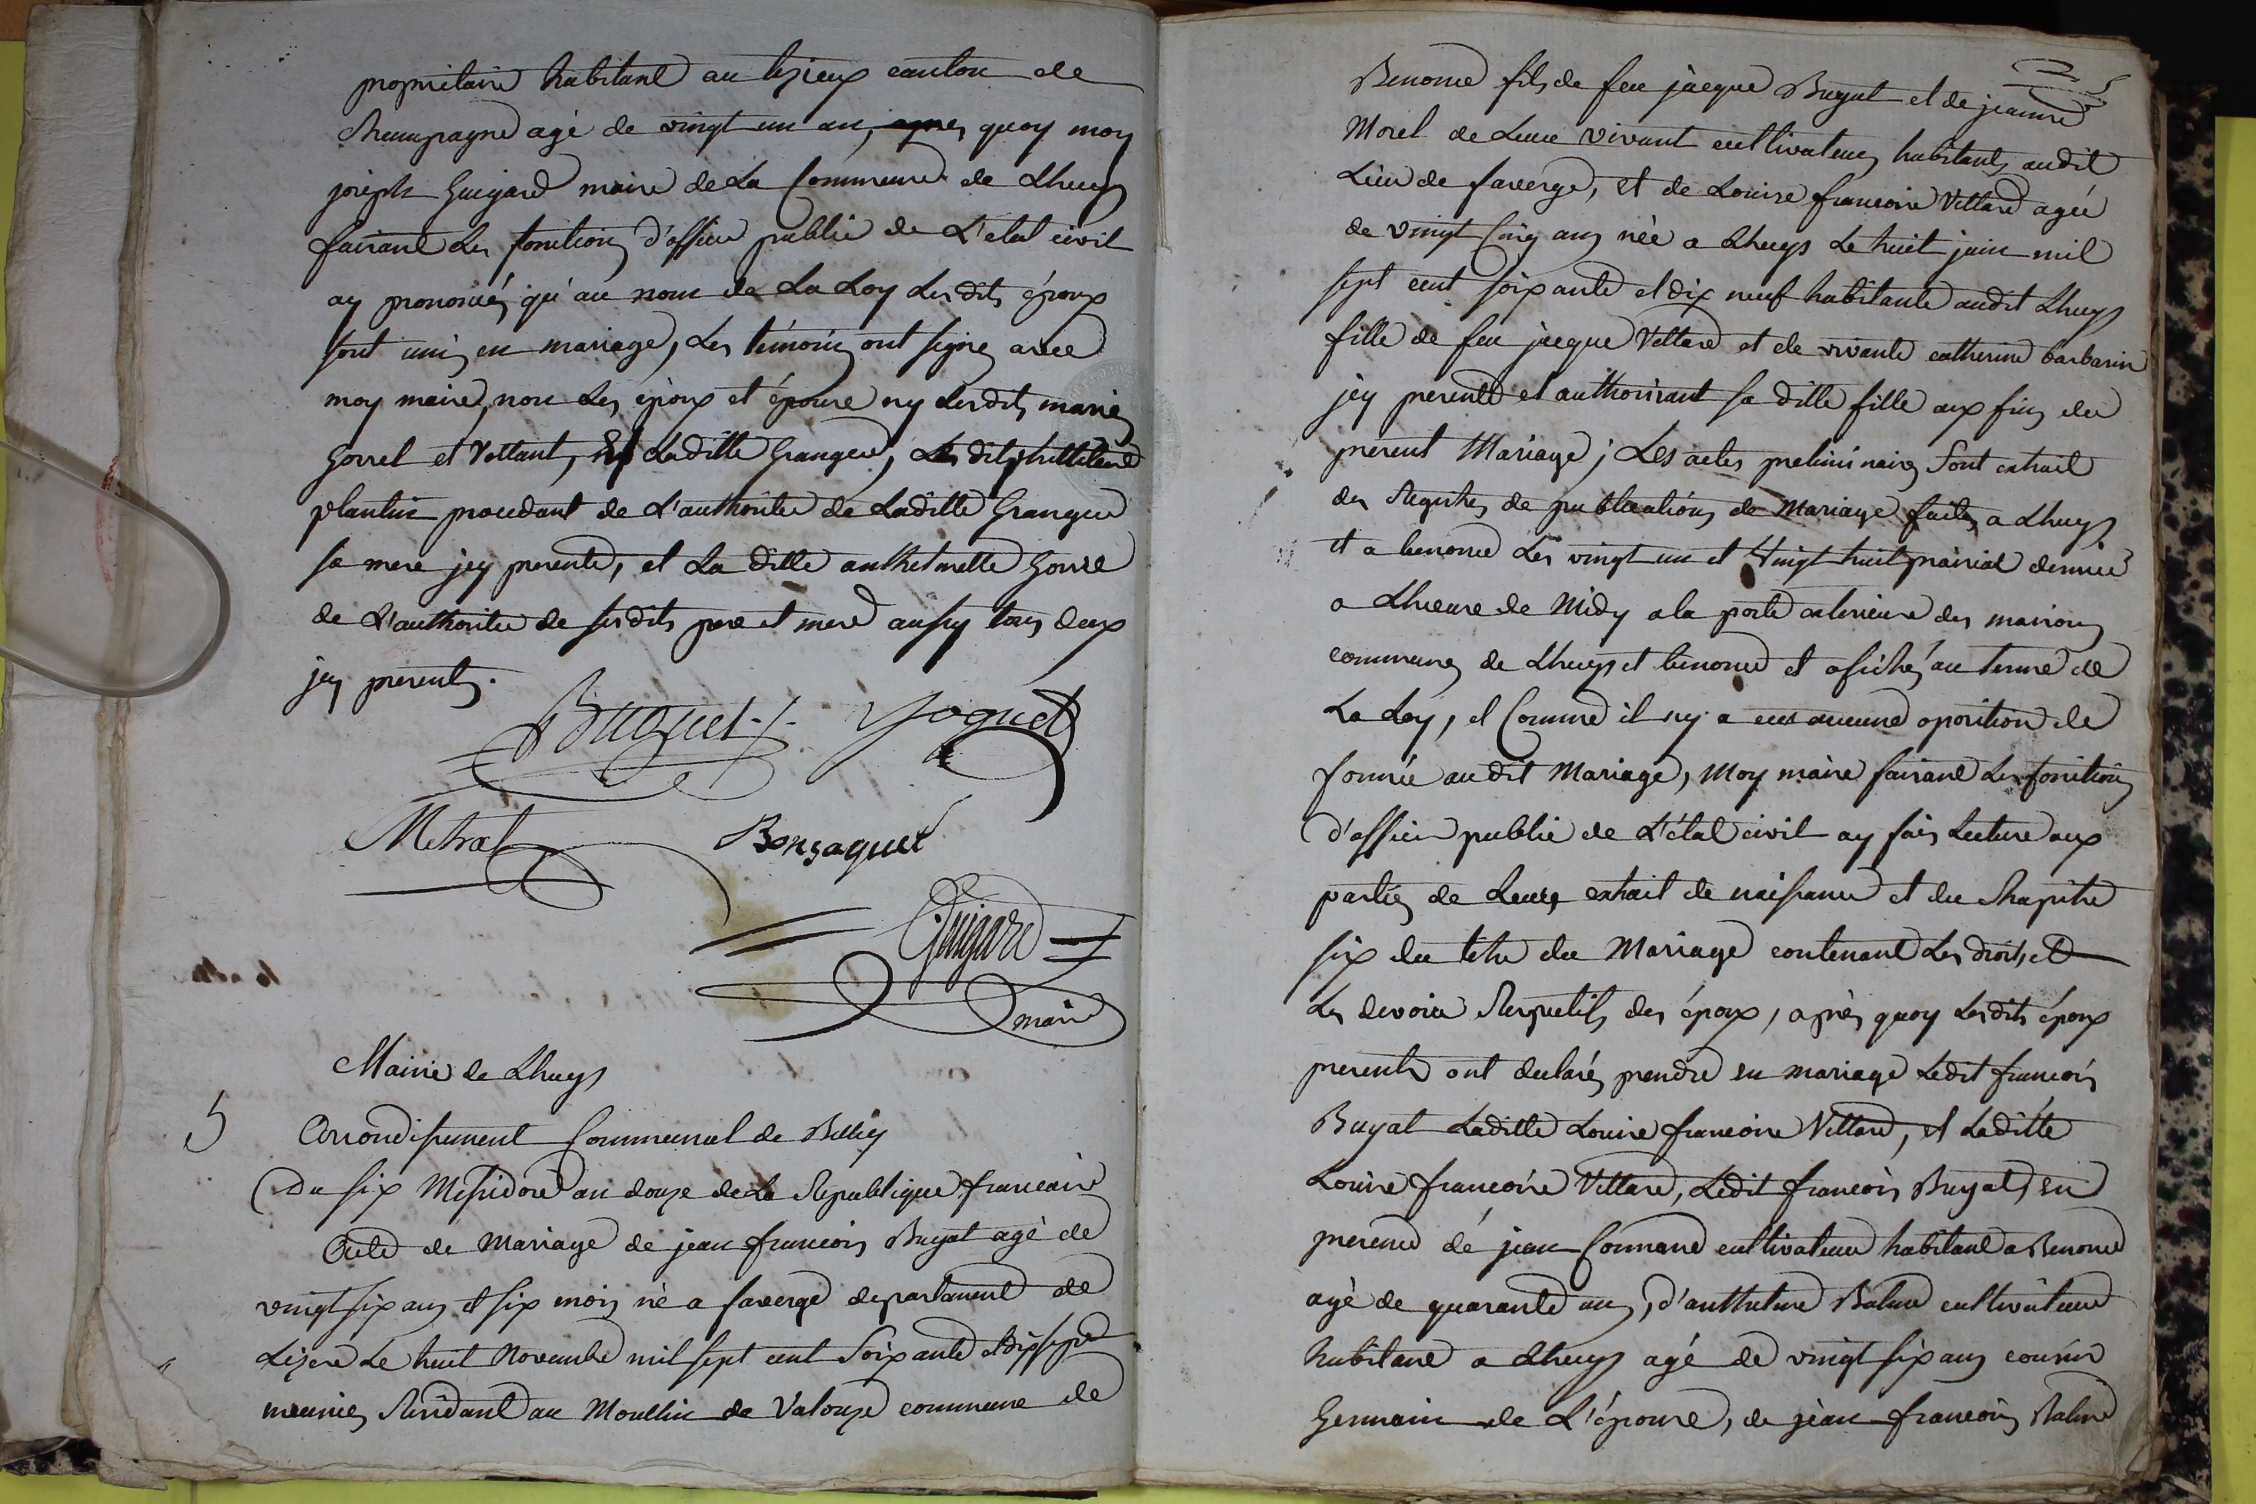 propriétaire habitant au lizieux canton de
Champagne agé de vingt un an, apres quoy moy
joseph Guigard maire de La Commune de Lhuys
faisant Les fonctions d'officier public de L'etat civil
ay prononcé, qu'au nom de La Loy Lesdits époux
sont unis en mariage, Les témoins ont signés avec
moy maire, non Les époux et épouse ny Lesdits mariés
Gorrel et Vettant, Laditte Grangeur, Les dit
plantin procedant de L'authorite de Laditte Grangeur
sa mere jcy presente, et La ditte anthelmette Gorrel
de L'authorite de sesdits pere et mere aussy tous deux
jcy presents.
Buguet Joguet
Metral Bonsaquet
Guigard
maire
Mairie de Lhuys
5 Arrondissement Communal de Belley
Du six Messidore an douze de La Republique francaise
Acte de Mariage de jean francois Buyat agé de
vingt six ans et six mois né a faverge departement de
Lizere Le huit Novembre mil sept cent Soixante et dix sept
meunier Residant au Moullin de Valouze commune de
Benonce fils de feu jacque Buyat et de jeanne
Morel de Leur vivant cultivateurs habitants audit
Lieu de faverge, et de Louise francoise Vettard agée
de vingt Cinq ans née a Lhuys Le huit juin mil
sept cent soixante et dix neuf habitante audit Lhuys
fille de feu jacque Vettard et de vivante catherine barbarin
jcy presente et authorisant sa ditte fille aux fins du
present Mariage; Les actes preliminaires Sont extrait
des Registres de publications de Mariage faites a Lhuys
et a benonce Les vingt un et Vingt huit prairial dernier
a Lheure de Midy a la porte exterieure des maisons
communes de Lhuys et benonce et afiché au terme de
La Loy, et Comme il ny a eut aucune oposition de
formée audit Mariage, Moy maire faisant Les fonctions
d'officier public de L'état civil ay fais Lecture aux
parties de Leurs extrait de naissance et du Chapitre
six du titre du Mariage contenant Les droits et
Les devoirs Respectifs des époux, après quoy Lesdits époux
presents ont declarés prendre en mariage Ledit francois
Buyat Laditte Louise francoise Vettard, et Laditte
Louise francoise Vettard, Ledit francois Buyat, en
presence de jean Connand cultivateur habitant a Benonce
agé de quarante ans, d'anthelme Balme cultivateur
habitant a Lhuys agé de vingt six ans cousin
Germain de L'épouse, de jean francois Balme